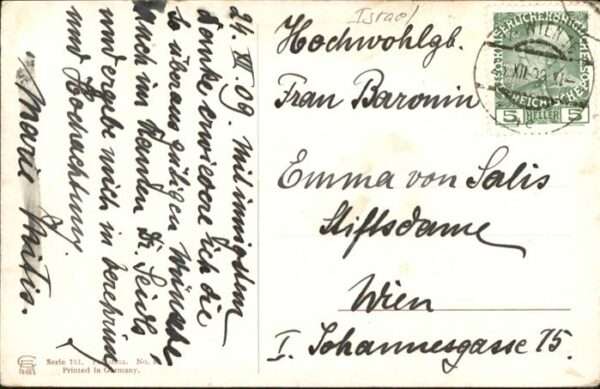 24. XII. 09. Mit innigstem
Danke erwidere ich die
so überaus gütigen Wünsche,
auch im Namen Dr. Seidls
und ergebe mich in
und Hochachtung
Marie Mitis.
Israel
Hochwohlgb.
Frau Baronin
Emma von Salis
Stiftsdame
Wien
I. Johannesgasse 15.
WIEN
XII 09
5 HELLER 5
Serie 751.
No.
Printed in Germany.